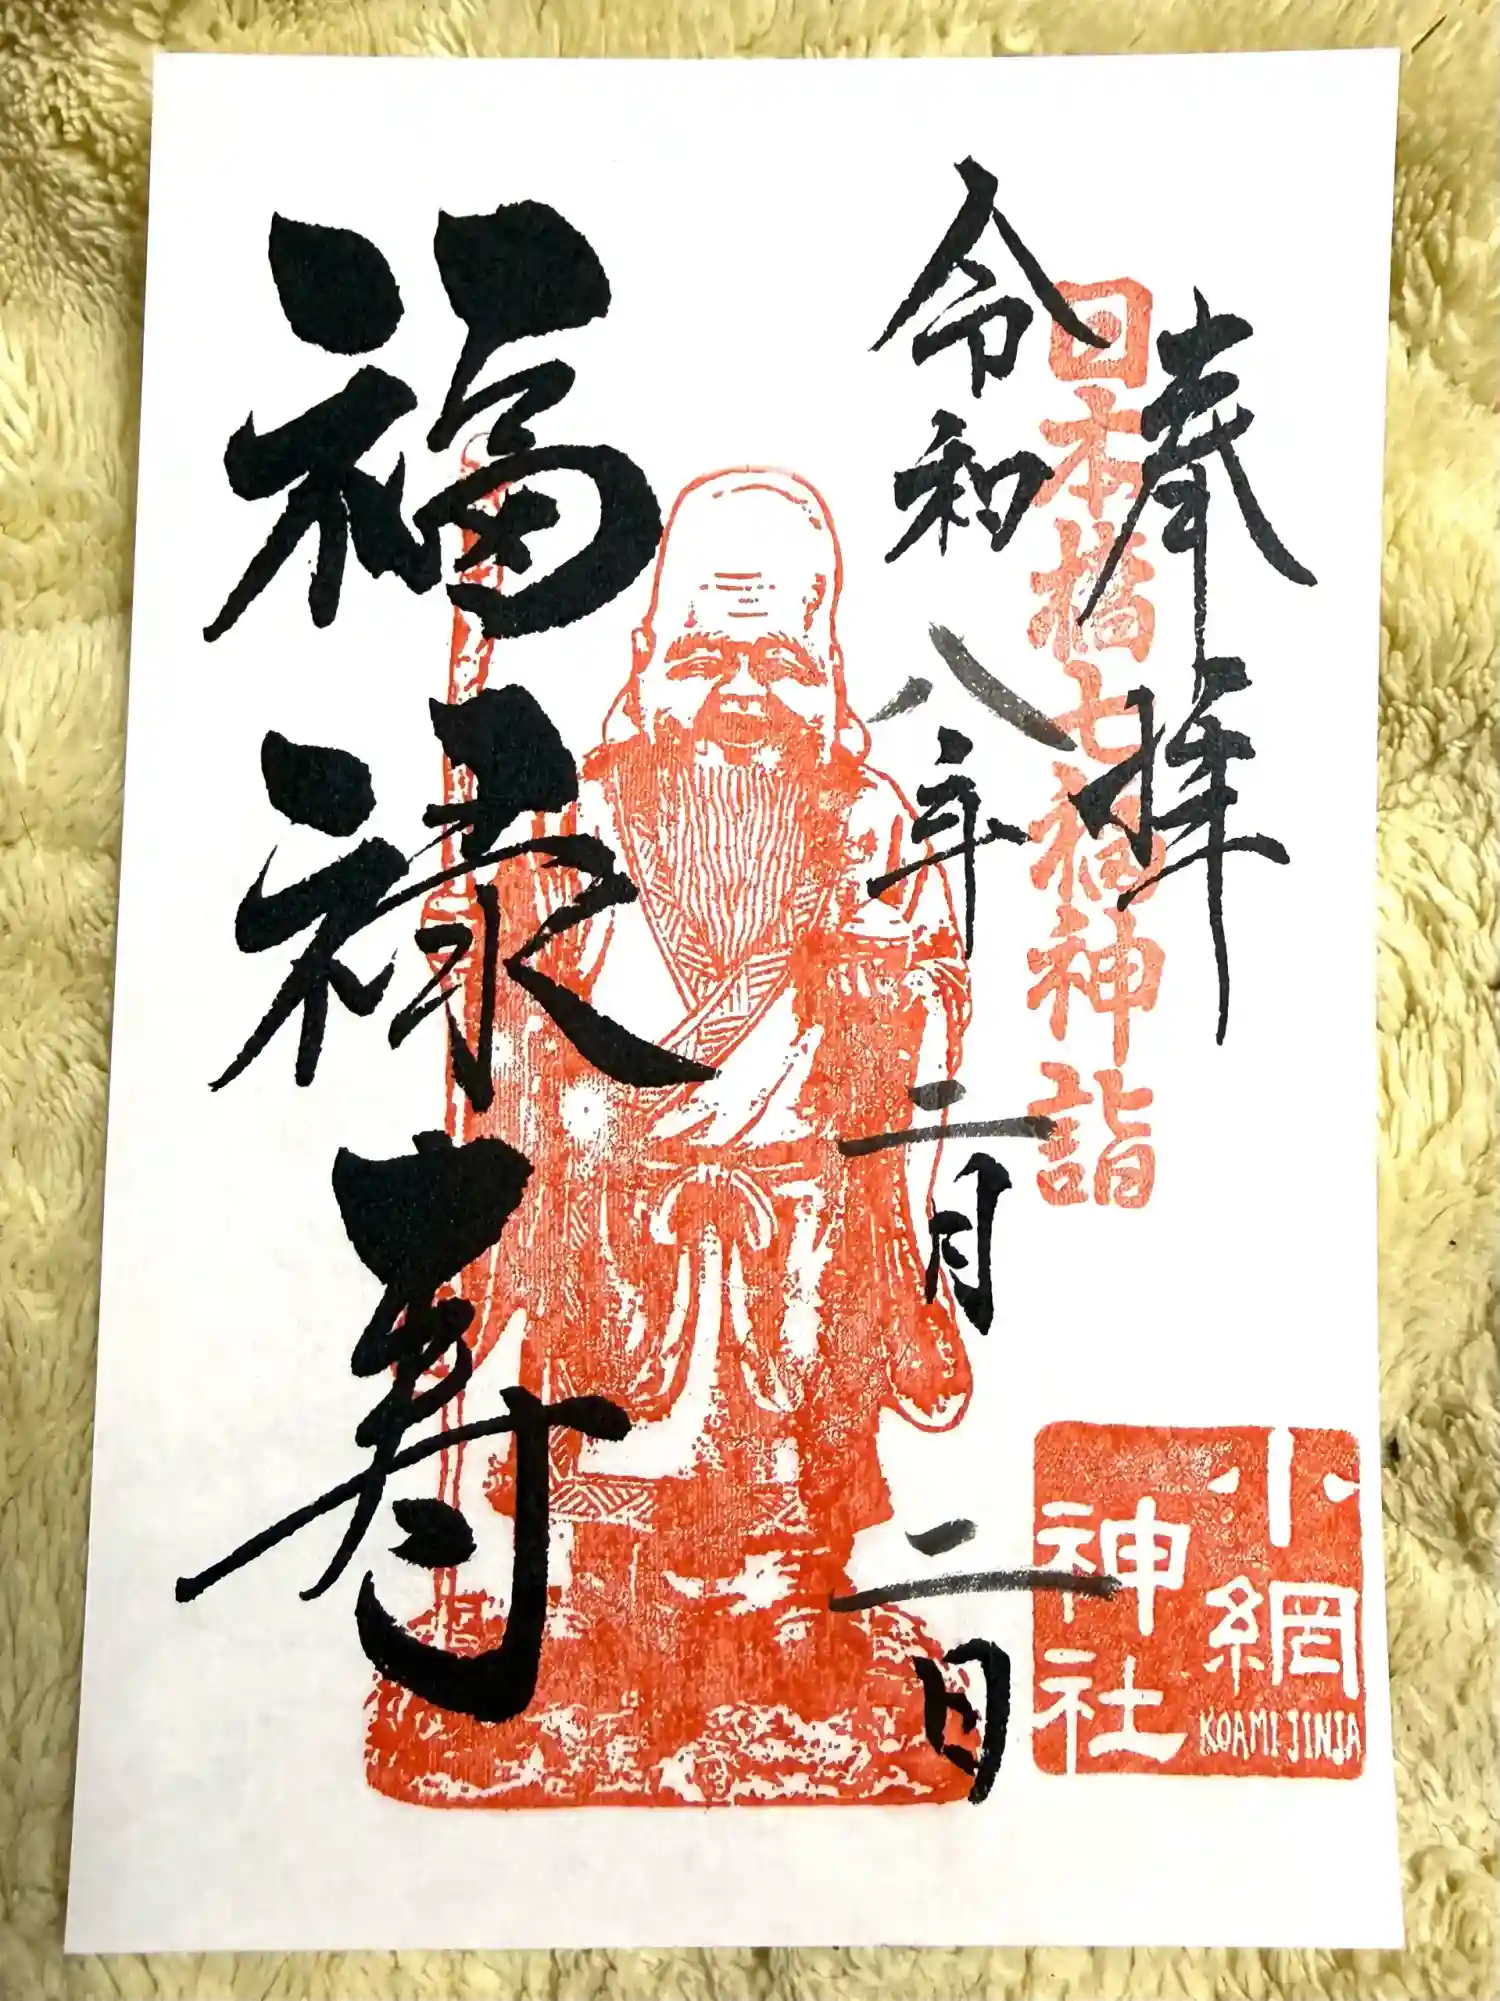 奉拝
日本橋七福神詣
令和八年二月二日
福禄寿
小網
神社
KOAMI JINJA